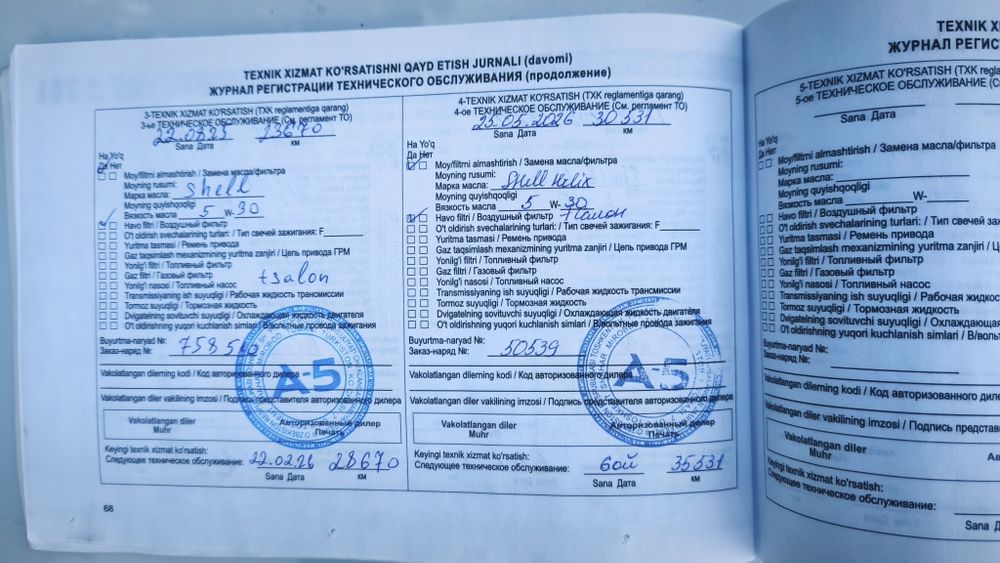 TEXNIK XIZMAT KO'RSATISHNI QAYD ETISH JURNALI (davomi)
ЖУРНАЛ РЕГИСТРАЦИИ ТЕХНИЧЕСКОГО ОБСЛУЖИВАНИЯ (продолжение)
3-TEXNIK XIZMAT KO'RSATISH (TXK reglamentiga qarang)
3-ье ТЕХНИЧЕСКОЕ ОБСЛУЖИВАНИЕ (См. регламент ТО)
22.08.25 23670
Sana Дата км
Ha Yo'q
Да Нет
Moy/filtrni almashtirish / Замена масла/фильтра
Moyning rusumi:
Марка масла: Shell
Moyning quyishqoqligi
Вязкость масла 5 W-30
Havo filtri / Воздушный фильтр
O't oldirish svechalarining turlari: / Тип свечей зажигания: F
Yuritma tasmasi / Ремень привода
Gaz taqsimlash mexanizmining yuritma zanjiri / Цепь привода ГРМ
Yonilg'i filtri / Топливный фильтр
Gaz filtri / Газовый фильтр
Yonilg'i nasosi / Топливный насос +salon
Transmissiyaning ish suyuqligi / Рабочая жидкость трансмиссии
Tormoz suyuqligi / Тормозная жидкость
Dvigatelning sovituvchi suyuqligi / Охлаждающая жидкость двигателя
O't oldirishning yuqori kuchlanish simlari / Высоковольтные провода зажигания
Buyurtma-naryad №:
Заказ-наряд №:
Vakolatlangan dilerning kodi / Код авторизованного дилера
Vakolatlangan diler vakilining imzosi / Подпись представителя авторизованного дилера
A-5
Vakolatlangan diler Авторизованный дилер
Muhr Печать
Keyingi texnik xizmat ko'rsatish:
Следующее техническое обслуживание: 22.02.26 28670
Sana Дата км
68
4-TEXNIK XIZMAT KO'RSATISH (TXK reglamentiga qarang)
4-ое ТЕХНИЧЕСКОЕ ОБСЛУЖИВАНИЕ (См. регламент ТО)
25.05.2026 30531
Sana Дата км
Ha Yo'q
Да Нет
Moy/filtrni almashtirish / Замена масла/фильтра
Moyning rusumi:
Марка масла: Shell Helix
Moyning quyishqoqligi
Вязкость масла 5 W-30
Havo filtri / Воздушный фильтр
O't oldirish svechalarining turlari: / Тип свечей зажигания: F
Yuritma tasmasi / Ремень привода
Gaz taqsimlash mexanizmining yuritma zanjiri / Цепь привода ГРМ
Yonilg'i filtri / Топливный фильтр
Gaz filtri / Газовый фильтр
Yonilg'i nasosi / Топливный насос
Transmissiyaning ish suyuqligi / Рабочая жидкость трансмиссии
Tormoz suyuqligi / Тормозная жидкость
Dvigatelning sovituvchi suyuqligi / Охлаждающая жидкость двигателя
O't oldirishning yuqori kuchlanish simlari / Высоковольтные провода зажигания
Buyurtma-naryad №:
Заказ-наряд №: 50539
Vakolatlangan dilerning kodi / Код авторизованного дилера
Vakolatlangan diler vakilining imzosi / Подпись представителя авторизованного дилера
A-5
Vakolatlangan diler Авторизованный дилер
Muhr Печать
Keyingi texnik xizmat ko'rsatish:
Следующее техническое обслуживание: 6ой 35531
Sana Дата км
TEXNIK X
ЖУРНАЛ РЕГИСТ
5-TEXNIK XIZMAT KO'RSATISH (TXK regl
5-ое ТЕХНИЧЕСКОЕ ОБСЛУЖИВАНИЕ (См.
Sana Дата
Ha Yo'q
Да Нет
Moy/filtrni almashtirish / Замена масла/фильтра
Moyning rusumi:
Марка масла:
Moyning quyishqoqligi
Вязкость масла W-
Havo filtri / Воздушный фильтр
O't oldirish svechalarining turlari: / Тип свечей зажига
Yuritma tasmasi / Ремень привода
Gaz taqsimlash mexanizmining yuritma zanjiri / Це
Yonilg'i filtri / Топливный фильтр
Gaz filtri / Газовый фильтр
Yonilg'i nasosi / Топливный насос
Transmissiyaning ish suyuqligi / Рабочая жидкос
Tormoz suyuqligi / Тормозная жидкость
Dvigatelning sovituvchi suyuqligi / Охлаждающая
O't oldirishning yuqori kuchlanish simlari / В/воль
Buyurtma-naryad №:
Заказ-наряд №:
Vakolatlangan dilerning kodi / Код авторизованного
Vakolatlangan diler vakilining imzosi / Подпись предста
Vakolatlangan diler
Muhr
Keyingi texnik xizmat ko'rsatish:
Следующее техническое обслуживание:
Sana Дата